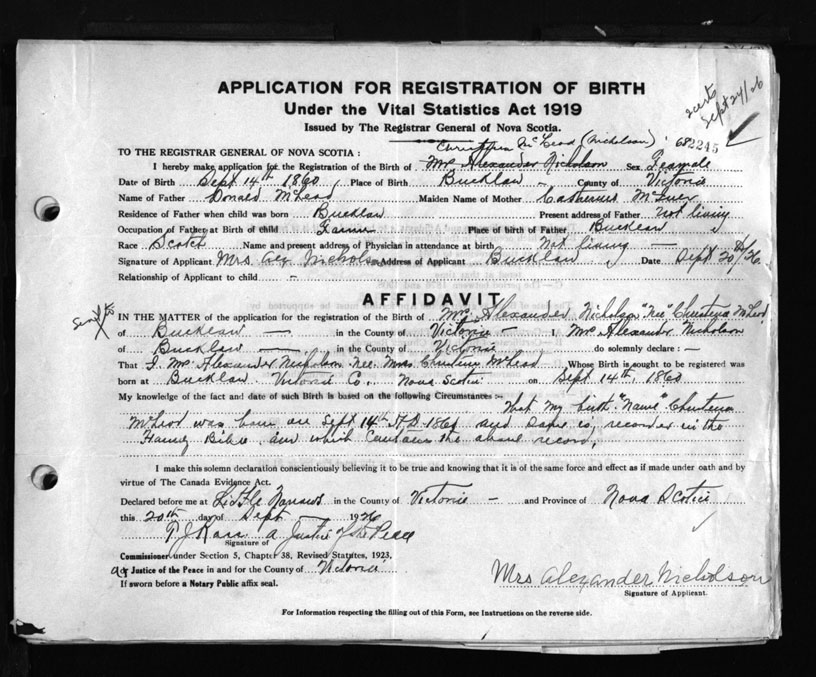 APPLICATION FOR REGISTRATION OF BIRTH
Under the Vital Statistics Act 1919
Issued by The Registrar General of Nova Scotia.
Sept 24/26
Mc Leod (Nicholson) 682245
TO THE REGISTRAR GENERAL OF NOVA SCOTIA :
I hereby make application for the Registration of the Birth of Mrs Alexander Nicholson Sex Feamale
Date of Birth Sept 14th 1860 Place of Birth Bucklaw - County of Victoria
Name of Father Donald McLeod Maiden Name of Mother
Residence of Father when child was born Bucklaw Present address of Father Not living
Occupation of Father at Birth of child Farmer Place of Birth of Father Bucklaw
Race Scotch Name and present address of Physician in attendance at birth Not living -
Signature of Applicant Mrs. Alex. Nicholson Address of Applicant Bucklaw Date Sept 20th/26
Relationship of Applicant to child -
AFFIDAVIT
IN THE MATTER of the application for the registration of the Birth of Mrs Alexander Nicholson "Nee" Christena McLeod
of Bucklaw - in the County of Victoria - I, Mrs Alexander Nicholson
of Bucklaw - in the County of Victoria do solemnly declare :—
That I Mrs Alexander Nicholson Nee Christena McLeod Whose Birth is sought to be registered was
born at Bucklaw Victoria Co, Nova Scotia on Sept 14th, 1860
My knowledge of the fact and date of such Birth is based on the following Circumstances :-
That my birth "Name" Christena
McLeod was born on Sept 14th A.D. 1860 and same is recorded in the
Family Bible and which Contains the above record,
I make this solemn declaration conscientiously believing it to be true and knowing that it is of the same force and effect as if made under oath and by
virtue of The Canada Evidence Act.
Declared before me at Little Narrows in the County of Victoria - and Province of Nova Scotia
this 20th day of Sept - 1926
Ross a Justice of the Peace
Signature of
Commissioner under Section 5, Chapter 38, Revised Statutes, 1923,
or Justice of the Peace in and for the County of Victoria
If sworn before a Notary Public affix seal.
Mrs Alexander Nicholson
Signature of Applicant.
For Information respecting the filling out of this Form, see Instructions on the reverse side.